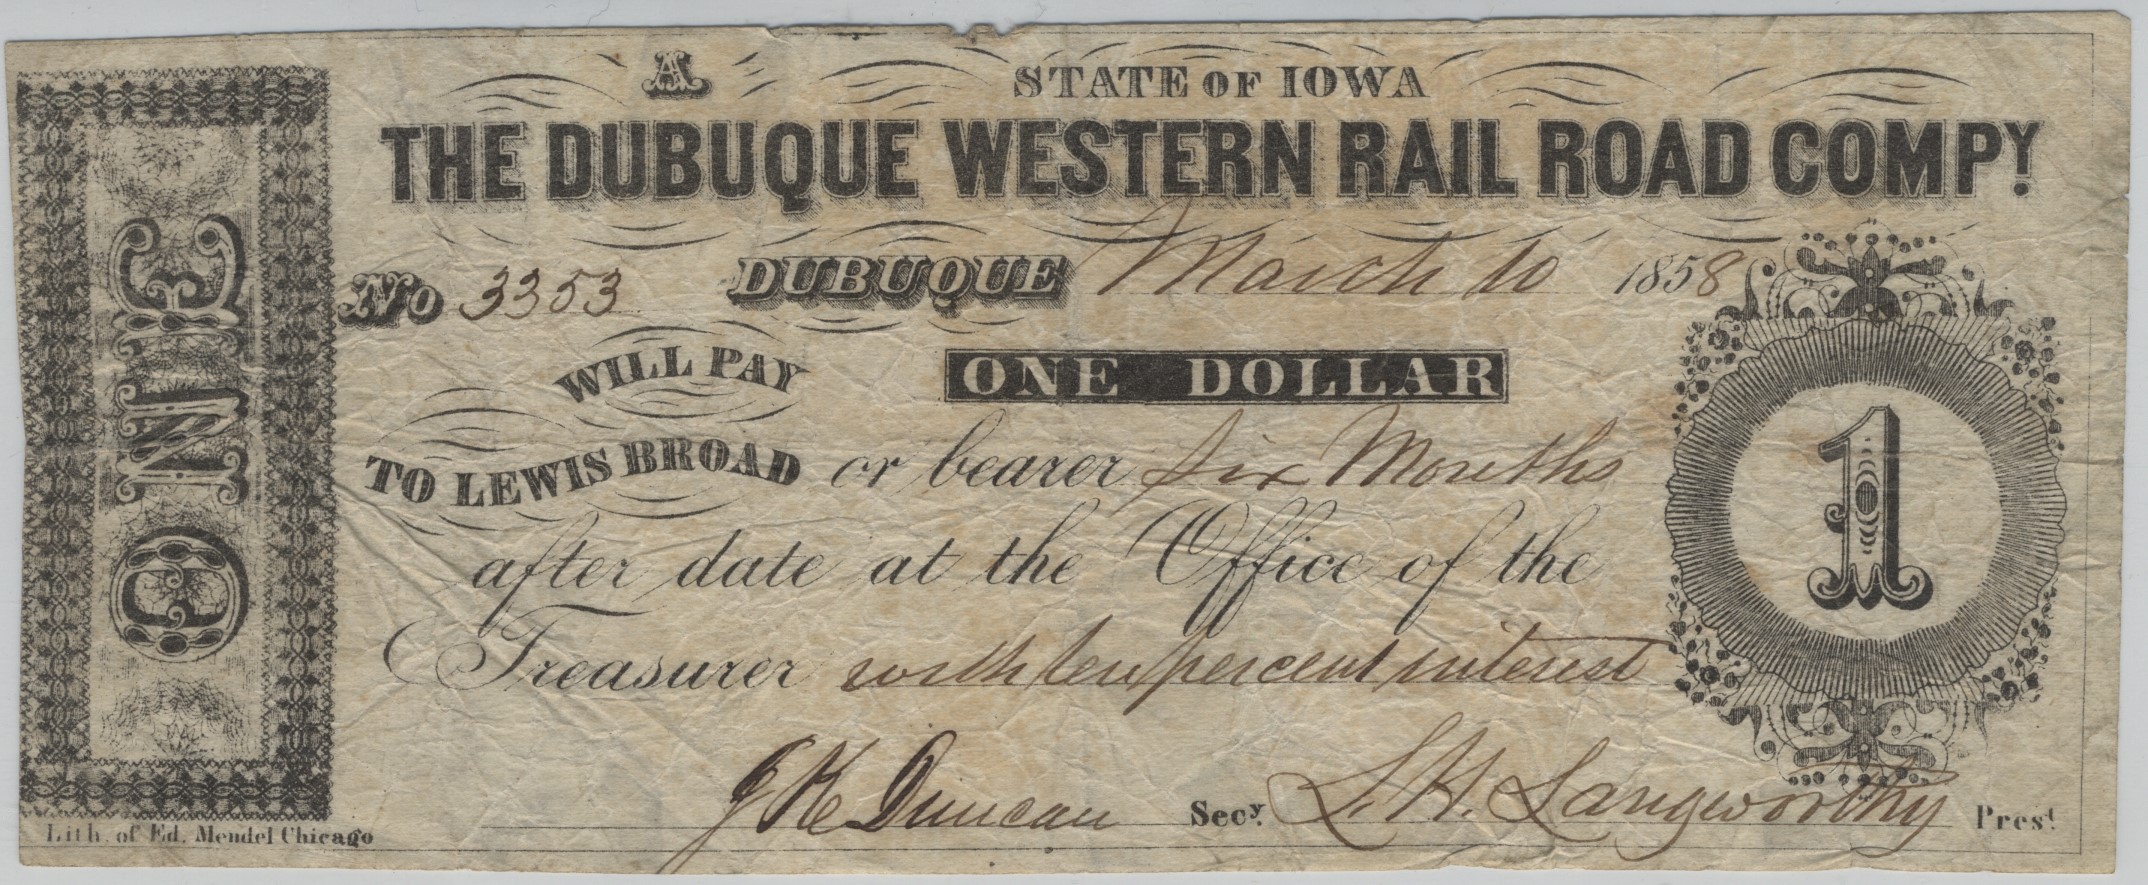 A STATE OF IOWA
THE DUBUQUE WESTERN RAIL ROAD COMPY.
No 3353 DUBUQUE March 10 1858
WILL PAY ONE DOLLAR
TO LEWIS BROAD or bearer six Months
after date at the Office of the
Treasurer with ten percent interest
J K Duncan Secy. L. H. Langworthy Prest.
ONE
1
Lith. of Ed. Mendel Chicago